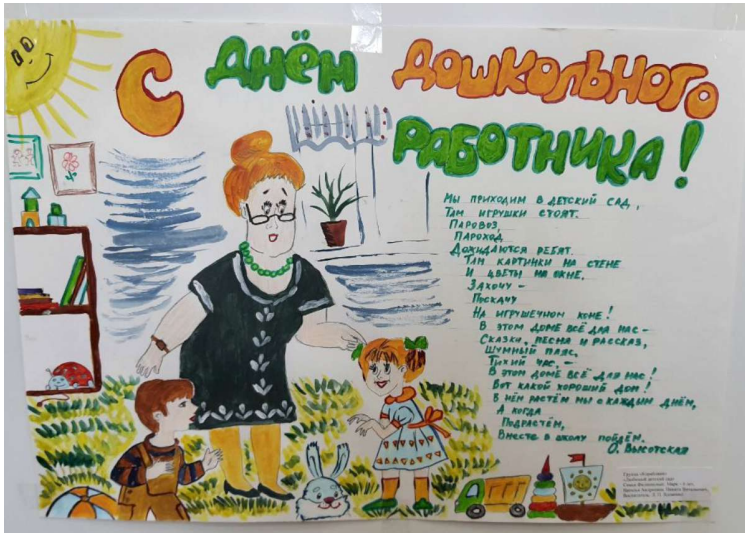 С ДНЁМ ДОШКОЛЬНОГО
РАБОТНИКА!
Мы приходим в детский сад,
Там игрушки стоят.
Паровоз,
Пароход
Дожидаются ребят.
Там картинки на стене
И цветы на окне.
Захочу –
Поскачу
На игрушечном коне!
В этом доме всё для нас –
Сказки, песня и рассказ,
Шумный пляс,
Тихий час, –
В этом доме всё для нас!
Вот какой хороший дом!
В нём растём мы с каждым днём,
А когда
Подрастём,
Вместе в школу пойдём.
О. Высотская